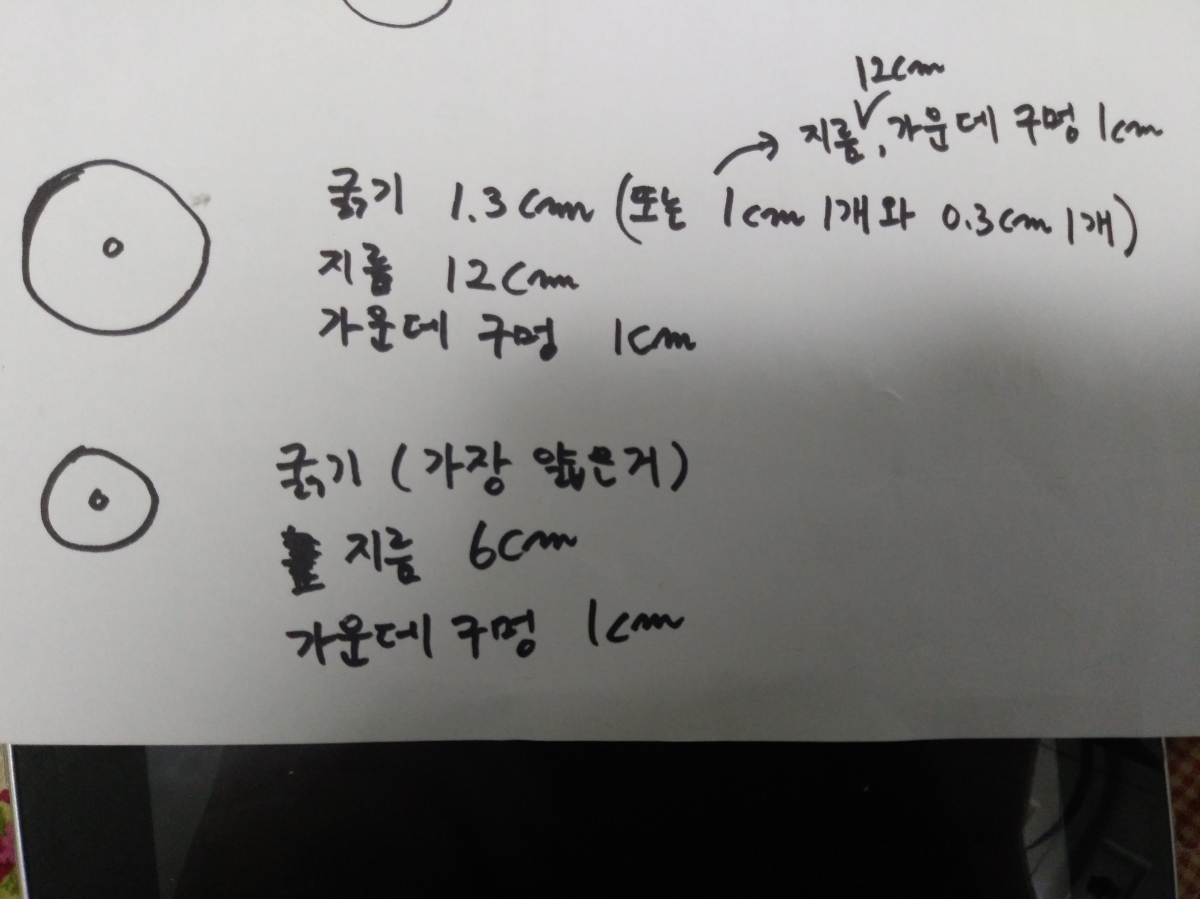 12cm
지름✓, 가운데 구멍 1cm
굵기 1.3cm (또는 1cm 1개와 0.3cm 1개)
지름 12cm
가운데 구멍 1cm
굵기 (가장 얇은거)
지름 6cm
가운데 구멍 1cm